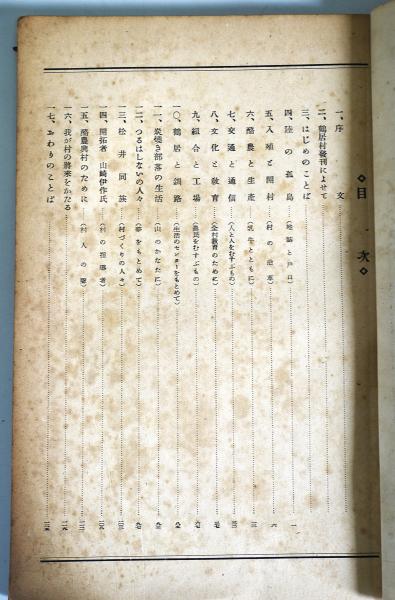 ◇目次◇
一、序文
二、鶴居村発刊によせて
三、はじめのことば
四、陸の孤島（地勢と戸口）一
五、入植と開村（村の沿革）六
六、酪農と生産（乳牛とともに）三
七、交通と通信（人と人をむすぶもの）
八、文化と教育（全村教育のために）
九、組合と工場（農民をむすぶもの）
一〇、鶴居と釧路（生活のセンターをもとめて）
一一、炭焼き部落の生活（山のかなたに）
一二、つるはしないの人々（夢をもとめて）
一三、松井同族（村づくりの人々）
一四、開拓者 山崎伊作氏（村の指導者）
一五、酪農興村のために（村人の声）
一六、我が村の将来をかたる
一七、おわりのことば